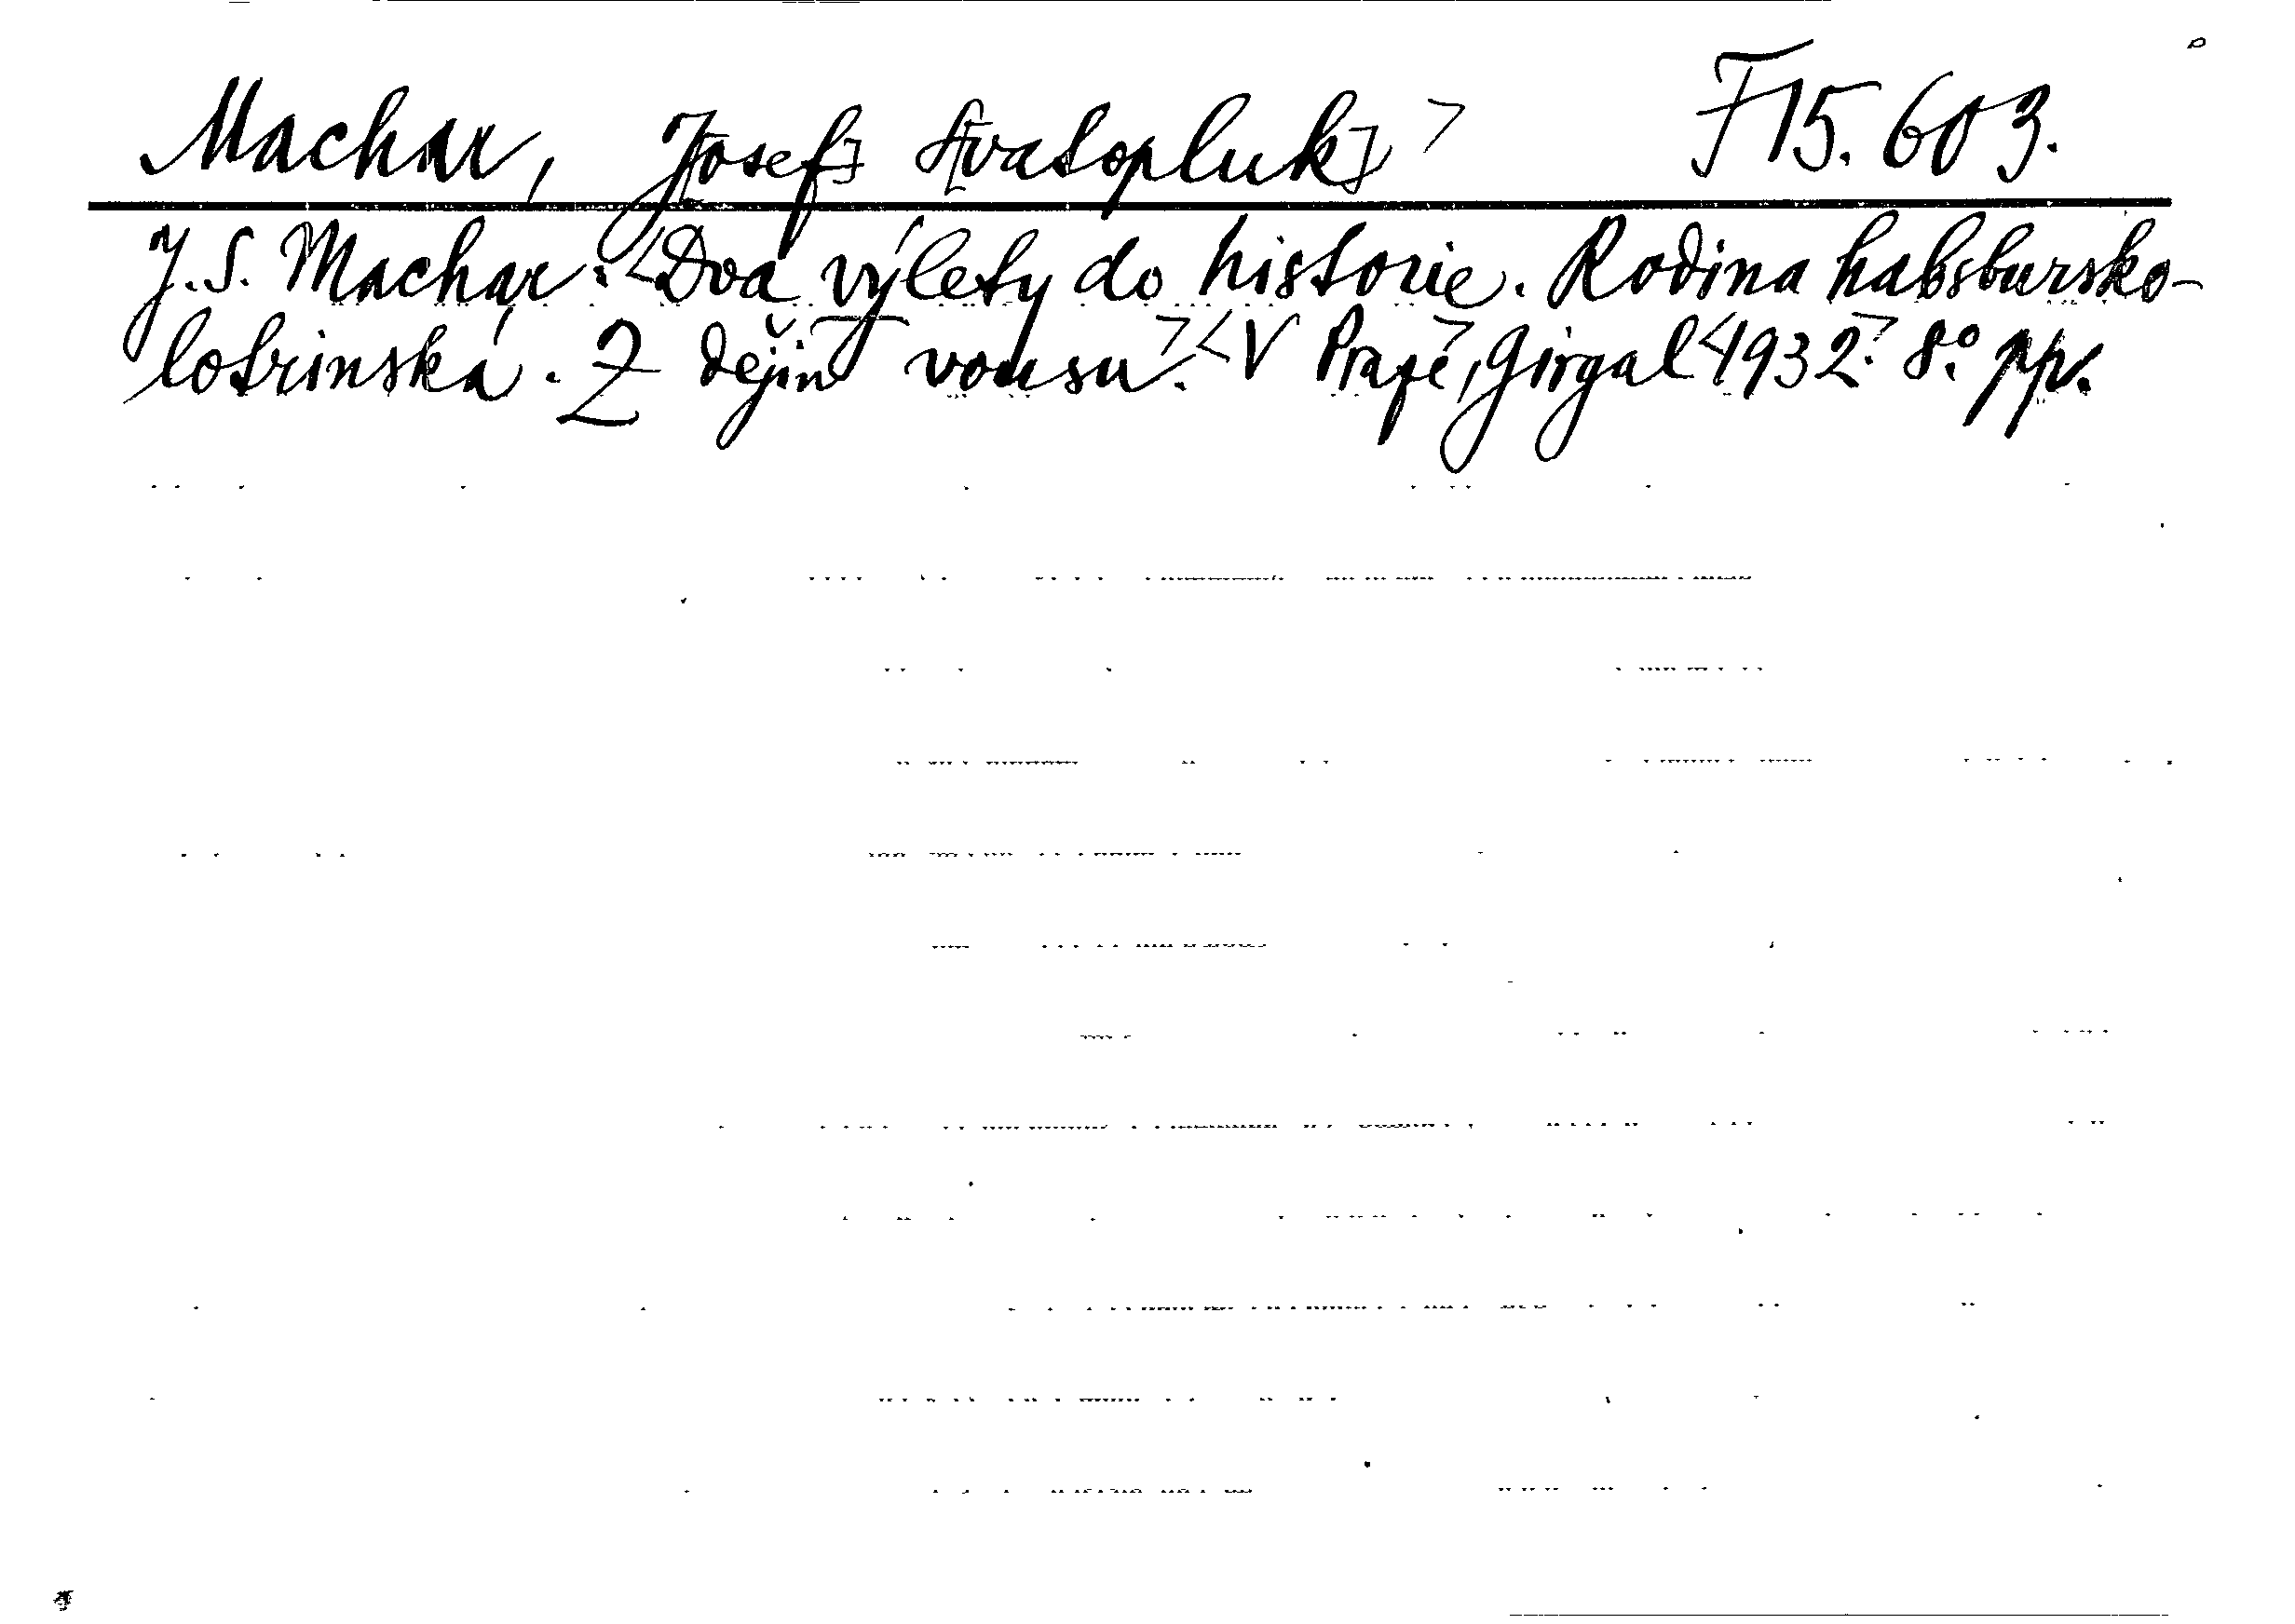 Machar, J[osef] S[vatopluk]> F 15.603.
J. S. Machar: <Dva výlety do historie. Rodina habsbursko-
lotrinská. Z dějin vousu.> <V Praze>, Girgal <1932.> 8.° ppr.